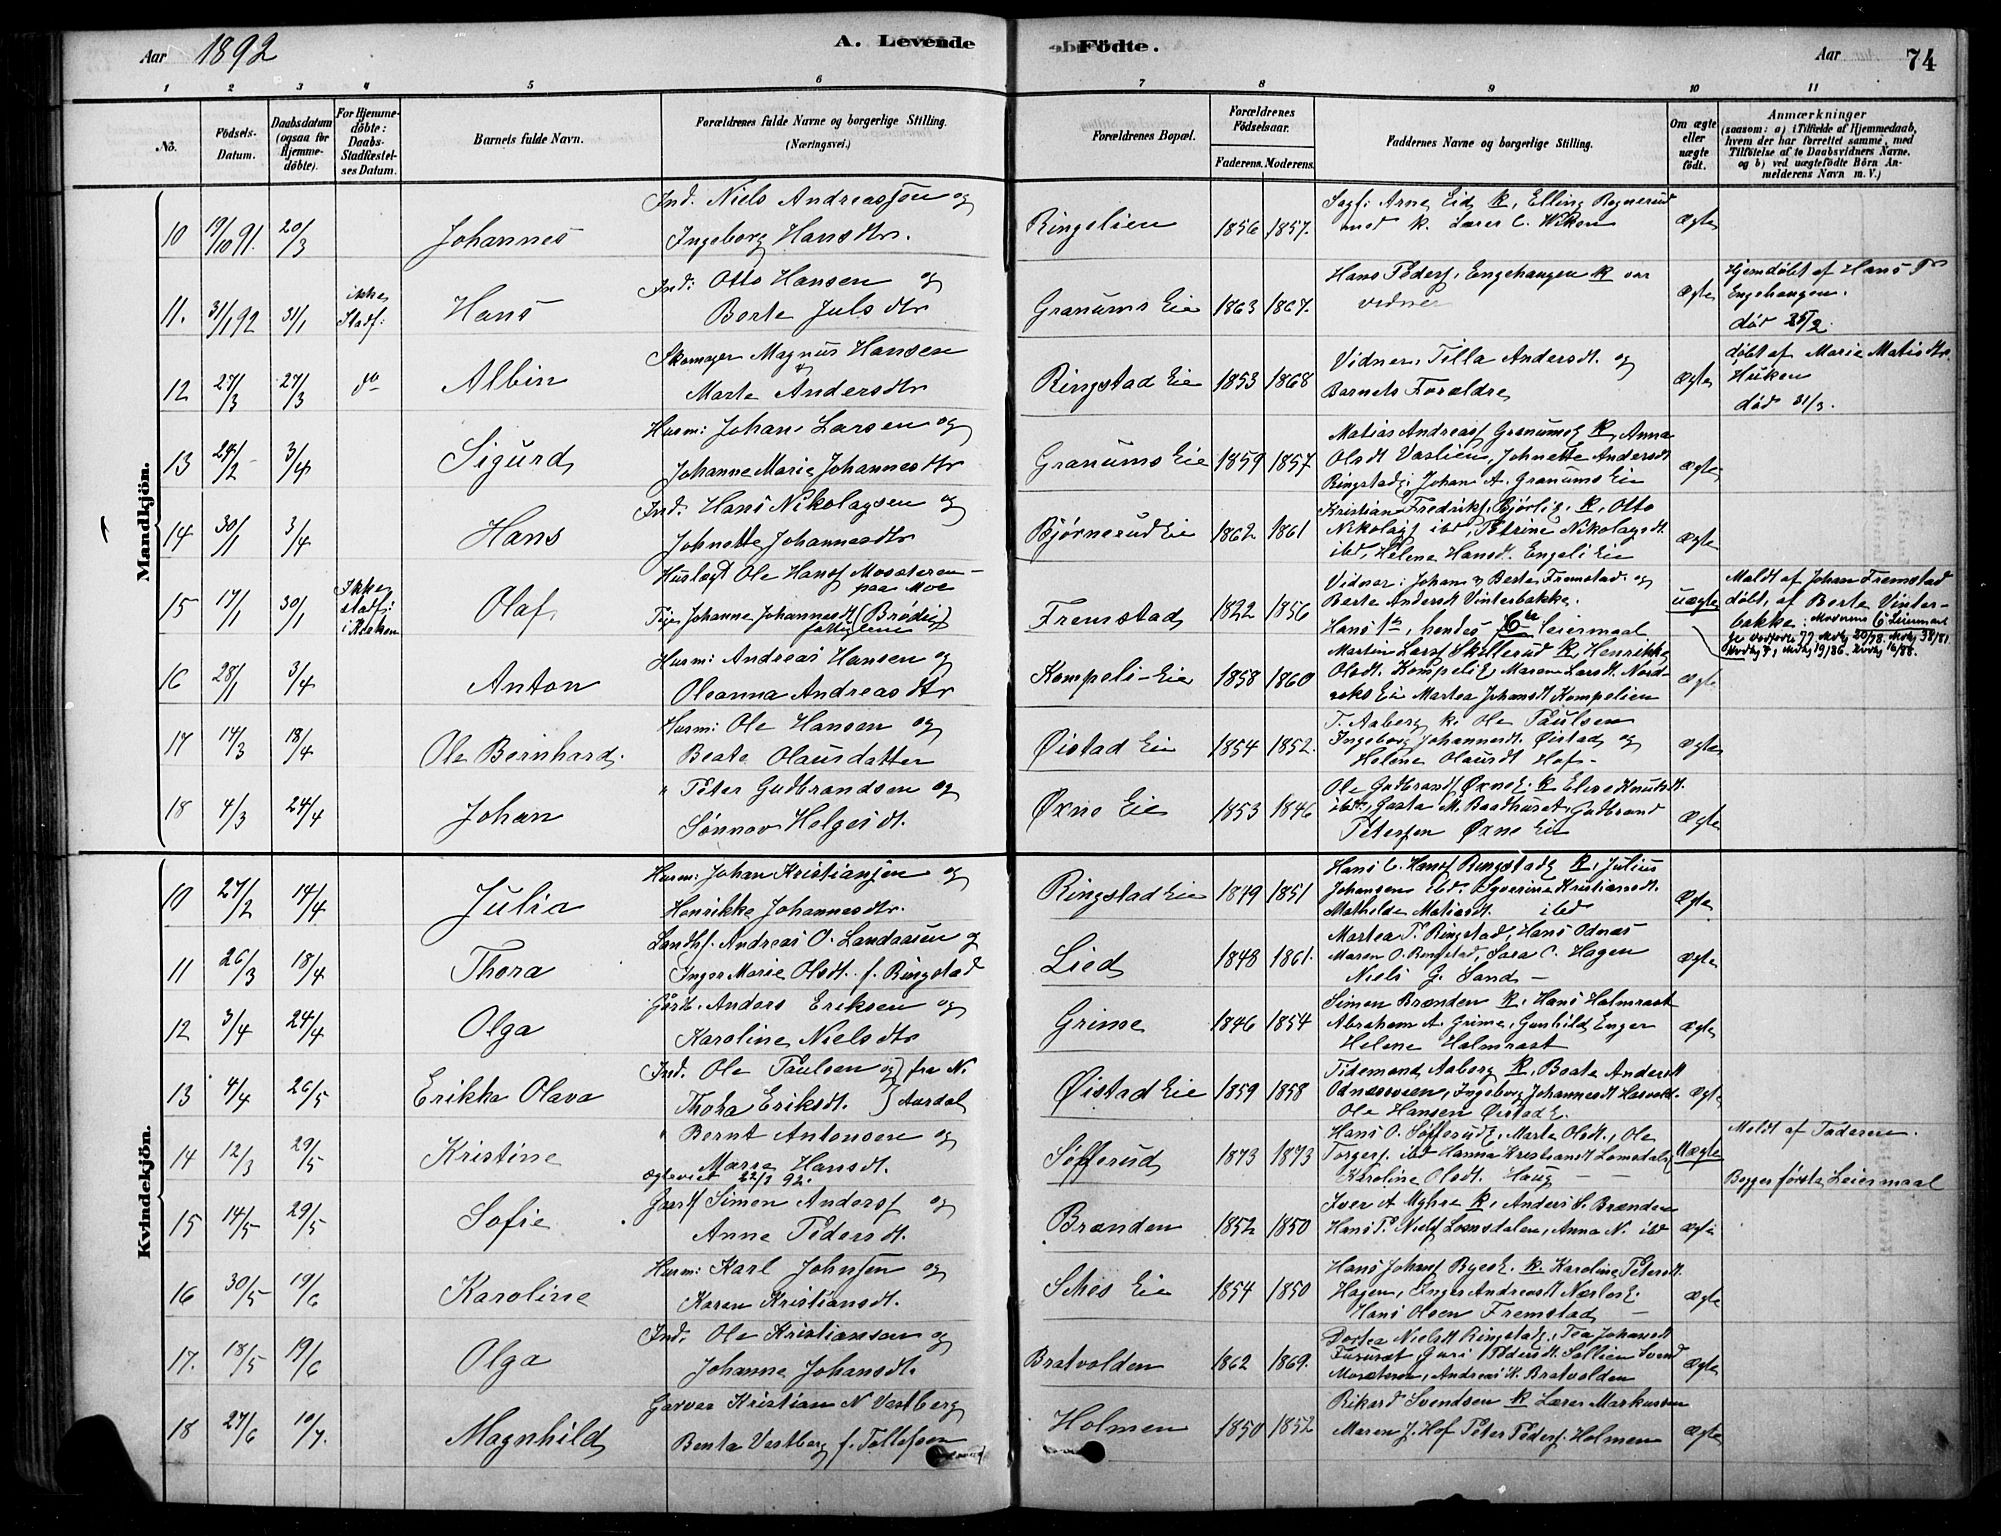 Aar 1892 A. Levende Födte. Aar 74
1 2 3 4 5 6 7 8 9 10 11
No. Födsels-Datum. Daabsdatum (ogsaa for Hjemmedöbte). For Hjemmedöbte: Daabs-Stadfæstelses Datum. Barnets fulde Navn. Forældrenes fulde Navne og borgerlige Stilling. (Næringsvei.) Forældrenes Bopæl. Forældrenes Födselsaar. Faderens. Moderens. Faddernes Navne og borgerlige Stilling. Om ægte eller uægte födt. Anmærkninger (saasom: a) i Tilfælde af Hjemmedaab, hvem der har forrettet samme, med Tilföielse af to Daabsvidners Navne, og b) ved uægtefödte Börn Anmelderens Navn m. V.)
Mandkjön.
10 19/10 91. 20/3 Johannes Ind. Niels Andreassen og
Ingeborg Hansdtr. Ringelien 1856 1857. Arne Eid k, Elling Rognerud
k. Lærer C. Wiken ægte
11. 31/1 92 31/1 ikke Stadf: Hans Ind: Otto Hansen og
Berte Julsdtr Granums Eie 1863 1867. Hans Pedersf. Engehaugen k var
vidne ægte Hjemdøbt af Hans P.
Engehaugen.
død 25/2.
12 27/3 27/3 do Albin Skomager Magnus Hansen
& Marte Andersdtr Ringstad Eie 1853 1868 Vidner, Tilla Andersdt. og
Barnets Forældre ægte døbt af Marie Matisdtr.
Huken
død 31/3.
13 24/2 3/4 Sigurd Husm: Johan Larsen og
Johanne Marie Johannesdtr Granums Eie 1859 1857 Matias Andreasf Granumsf k, Anna
Olsdt Vaslien, Johnette Andersdt
Ringstad, Johan A. Granums Eie ægte
14 30/1 3/4 Hans Ind. Hans Nikolaysen og
Johnette Johannesdtr Bjørnerud Eie 1862 1861 Kristian Fredriksf Bjørlig, k, Otto
Nikolayf ibd, Petrine Nikolaysdt
ibd, Helene Hansdt. Engeli Eie ægte
15 17/1 30/1 Ikke stadf: i Kirken Olaf Ole Hansf Moseteren
paa Moe
Pige Johanne Johannesdt (Brødlien) Fremstad 1822 1856 Vidner: Johan & Berte Fremstad og
Berte Andersdt Vinterbakke.
Hans 1ste, hendes 6te Leiermaal uægte Meldt af Johan Fremstad
døbt af Berte Vinter-
bakke. Moderens 6 Leiermaal
16 28/1 3/4 Anton Husm: Andreas Hansen og
Oleanna Andreasdtr Kompeli-Eie 1858 1860 Martin Larsf Skøllerud k, Henrikke
Olsdt. Kompeli E, Maren Larsdt. Nord-
Eie Martea Johansdt Kompelien ægte
17 14/3 18/4 Ole Bernhard. Husm: Ole Hansen og
Beate Olausdatter Øistad Eie 1854 1852. T. Aaberg k. Ole Paulsen
Ingeborg Johannesdt. Øistad og
Helene Olausdt Hof ægte
18 4/3 24/4 Johan " Peter Gudbrandsen og
Sønnøv Helgesdt. Øxne Eie 1853 1846 Ole Gudbrandf Øxne E. k Eli Knutsdt.
ibd, M. Raadhuset, Gudbrand
Petersen Øxne Eie ægte
Kvindekjön.
10 27/2 14/4 Julia Husm: Johan Kristiansen og
Henrikke Johannesdtr. Ringstad Eie 1849 1851 Hans C. Hansf Ringstad k, Julius
Johansen ibd. Syverine Kristiansdt.
Mathilde Matiasdt. ibd ægte
11 26/3 18/4 Thora Landhf. Andreas O. Landaasen og
Inger Marie Olsdt. f. Ringstad Lied 1848 1861. Martea P. Ringstad, Hans Odnæs
Maren O. Ringstad, Sara C. Hagen
Niels G. Sand ægte
12 3/4 24/4 Olga Anders Eriksen og
Karoline Nielsdtr Grime 1846 1854 Simen Brænden k, Hans Holmrast
Abraham A. Grime, Gunhild Enger
Helene Holmrast ægte
13 4/4 26/5 Erikka Olava Ind. Ole Paulsen og } fra N.
Thora Eriksdt. } Aurdal Øistad Eie 1859 1858 Tidemand Aaberg k, Beate Andersdt
Odnæsosen, Ingeborg Johannesdt
Ole Hansen Øistad E. ægte
14 12/3 29/5 Kristine " Bernt Antonsen og
Marie Hansdt.
ægteviet 22/3 92. Søfferud 1873 1873 Hans O. Søfferud, Marte Olsdt., Ole
Torgersf. ibd Hanna Kristiansdt Lomsdalen
Karoline Olsdt. Haug uægte Meldt af Faderen.
Begges første Leiermaal
15 14/5 29/5 Sofie Simen Andersf og
Anne Pedersdt. Brænden 1852 1850 Iver A Myhre k, Anders S. Brænden
Hans P. Nielsf Lomsdalen, Anna N. ibd ægte
16 30/5 19/6 Karoline Husm: Karl Johnsen og
Karen Kristiansdt. Eie 1854 1850 Hans Johansf k. Karoline Petersdt.
Hagen, Inger Andreasdt
Hans Olsen Fremstad ægte
17. 18/5 19/6 Olga Ind. Ole Kristiansen og
Johanne Johansdt. Bratvolden 1862 1869. Dortea Nielsdt Ringstad, Tea Johansdt
Furuset Guri Pedersdt. Sollien Svend
Moseteren, Andreas K. Bratvolden ægte
18 27/6 10/7. Magnhild Garver Kristian N Vestberg
Benta Vestberg f. Tollefsen Holmen 1850 1852 Rikard Svendsen k Lærer Markussen
Maren J. Hof Peter Pedersf. Holmen ægte